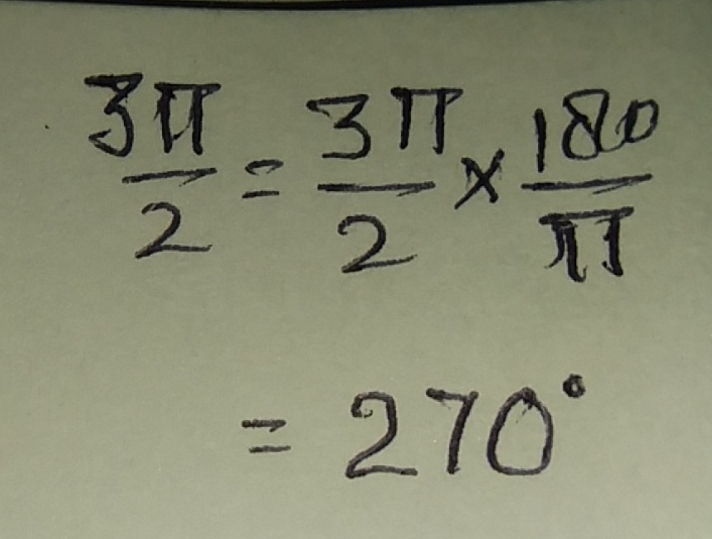 3π/2 = 3π/2 × 180/π
= 270°